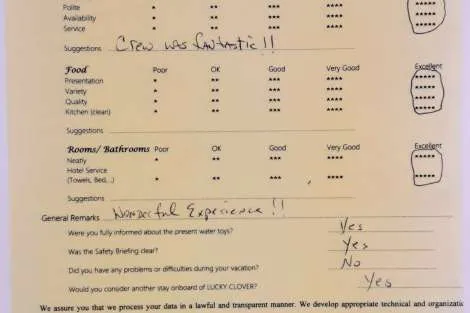 Polite * ** *** **** *****
Availability * ** *** **** *****
Service * ** *** **** *****
Suggestions Crew was fantastic!!
Food Poor OK Good Very Good Excellent
Presentation * ** *** **** *****
Variety * ** *** **** *****
Quality * ** *** **** *****
Kitchen (clean) * ** *** **** *****
Suggestions
Rooms/ Bathrooms Poor OK Good Very Good Excellent
Neatly * ** *** **** *****
Hotel Service
(Towels, Bed,...) * ** *** **** *****
Suggestions
General Remarks Wonderful Experience!!
Were you fully informed about the present water toys? Yes
Was the Safety Briefing clear? Yes
Did you have any problems or difficulties during your vacation? No
Would you consider another stay onboard of LUCKY CLOVER? Yes
We assure you that we process your data in a lawful and transparent manner. We develop appropriate technical and organizatic